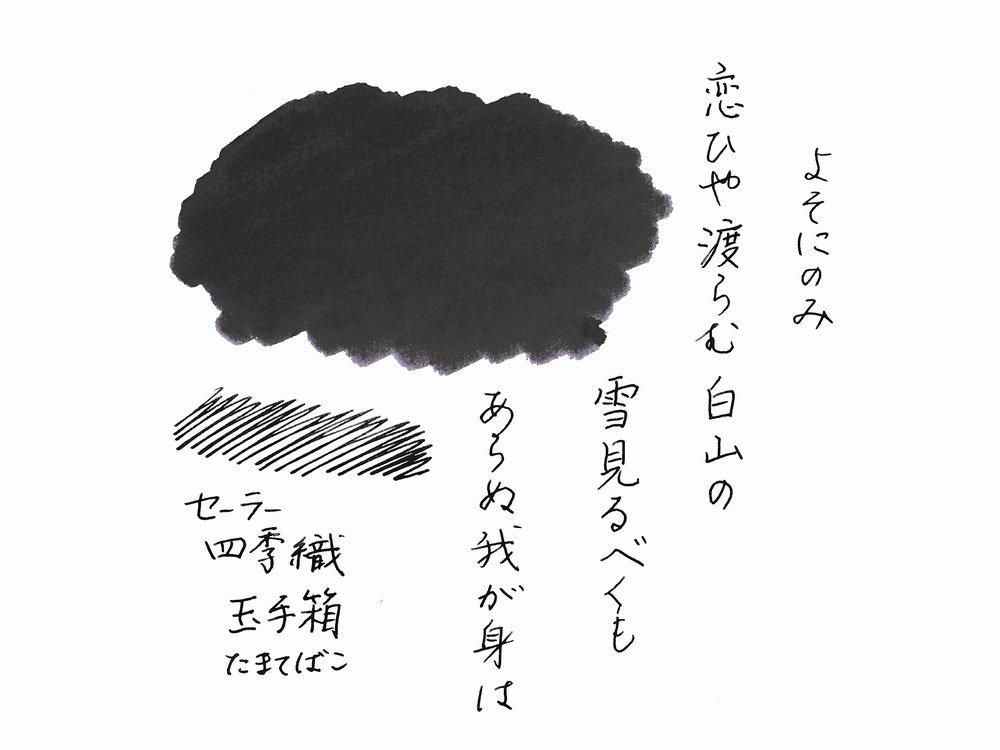 よそにのみ
恋ひや渡らむ白山の
雪見るべくも
あらぬ我が身は
セーラー
四季織
玉手箱
たまてばこ